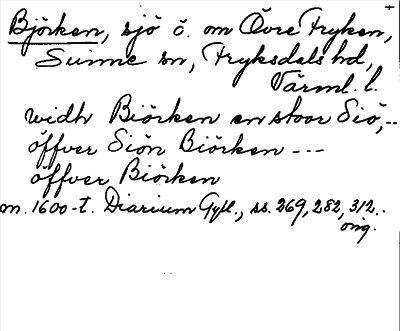 Björken, sjö ö. om Övre Fryken,
Sunne sn, Fryksdals hd,
Värml. l.
widh Biörken en stoor Siö,--
öffver Siön Biörken ---
öffver Biörken
m. 1600-t. Diarium Gyll., ss. 269, 282, 312..
orig.